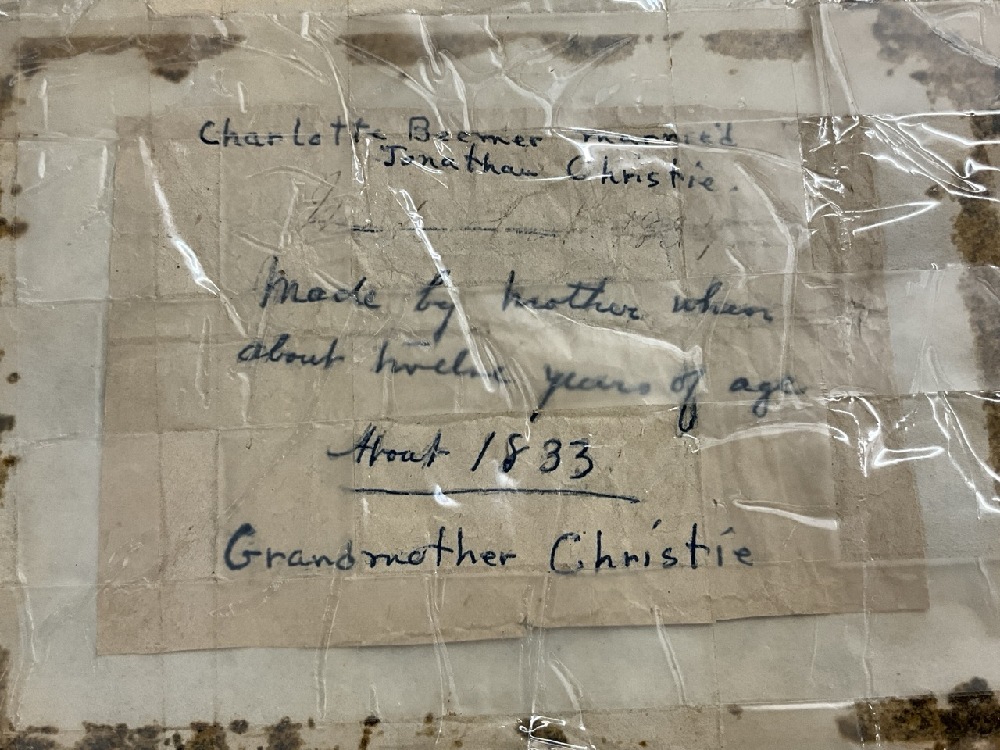 Charlotte Beemer married
Jonathan Christie.
Made by mother when
about twelve years of age
About 1833
Grandmother Christie